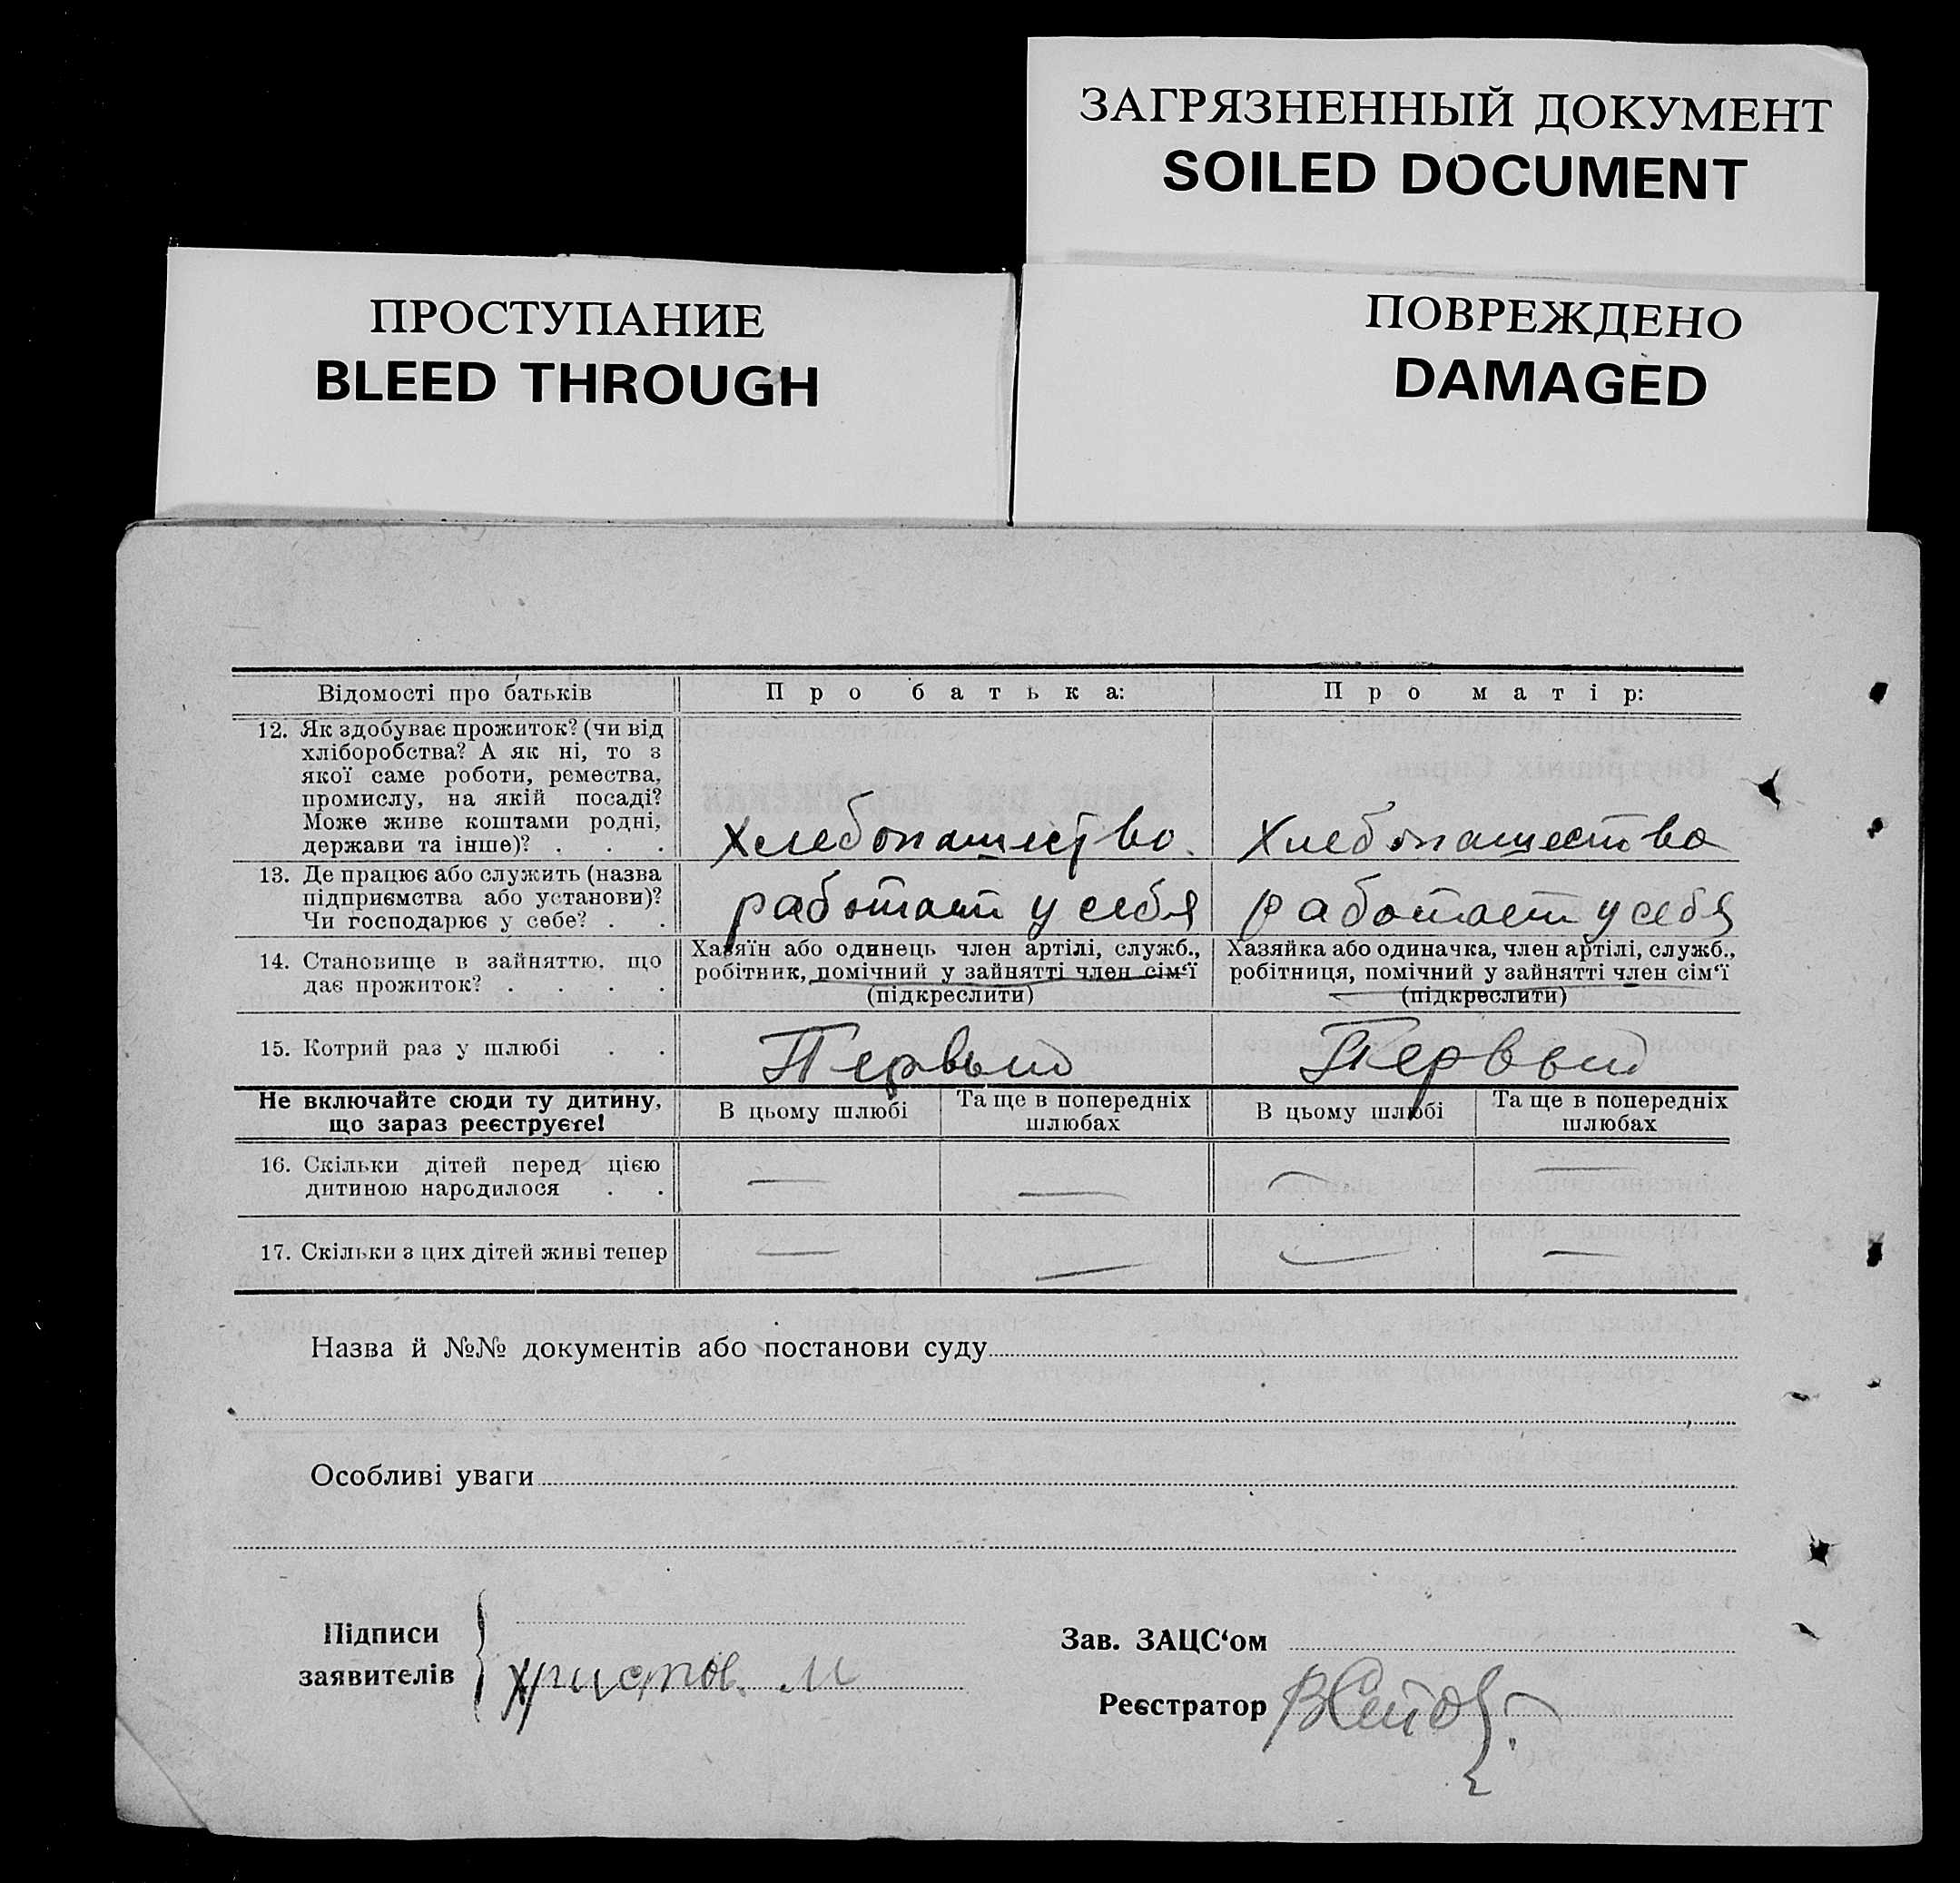 ЗАГРЯЗНЕННЫЙ ДОКУМЕНТ
SOILED DOCUMENT
ПРОСТУПАНИЕ
BLEED THROUGH
ПОВРЕЖДЕНО
DAMAGED
Відомості про батьків
Про батька:
Про матір:
12. Як здобуває прожиток? (чи від
хліборобства? А як ні, то з
якої саме роботи, ремества,
промислу, на якій посаді?
Може живе коштами родні,
держави та інше)? . . .
Хлебопашество.
Хлебопашество
13. Де працює або служить (назва
підприємства або установи)?
Чи господарює у себе? . .
работает у себя
работает у себя
14. Становище в зайняттю, що
дає прожиток? . . . .
Хазяїн або одинець член артілі, служб.,
робітник, помічний у зайнятті член сім‘ї
(підкреслити)
Хазяйка або одиначка, член артілі, служб.,
робітниця, помічний у зайнятті член сім‘ї
(підкреслити)
15. Котрий раз у шлюбі . .
Первый
Первый
Не включайте сюди ту дитину,
що зараз реєструєте!
В цьому шлюбі
Та ще в попередніх
шлюбах
В цьому шлюбі
Та ще в попередніх
шлюбах
16. Скільки дітей перед цією
дитиною народилося . .
— — — —
17. Скільки з цих дітей живі тепер
— — — —
Назва й №№ документів або постанови суду
Особливі уваги
Підписи
заявителів
Христов. М
Зав. ЗАЦС‘ом
Реєстратор